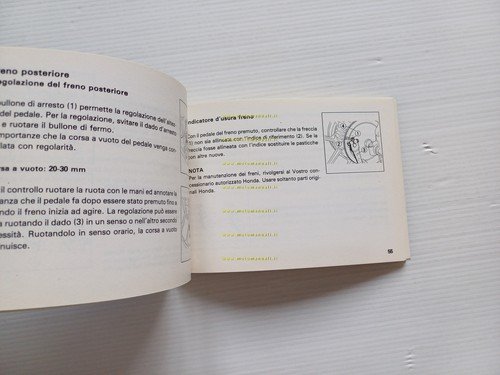 reno posteriore
egolazione del freno posteriore
bullone di arresto (1) permette la regolazione dell'altez
del pedale. Per la regolazione, svitare il dado d'arresto
e ruotare il bullone di fermo.
mportanza che la corsa a vuoto del pedale venga con
lata con regolarità.
rsa a vuoto: 20-30 mm
il controllo ruotare la ruota con le mani ed annotare la
tanza che il pedale fa dopo essere stato premuto fino a
ndo il freno inizia ad agire. La regolazione può essere
a ruotando il dado (3) in un senso o nell'altro secondo
essità. Ruotandolo in senso orario, la corsa a vuoto
nuisce.
Indicatore d'usura freno
Con il pedale del freno premuto, controllare che la freccia
(1) non sia allineata con l'indice di riferimento (2). Se la
freccia fosse allineata con l'indice sostituire le pasticche
con altre nuove.
NOTA
Per la manutenzione dei freni, rivolgersi al Vostro con-
cessionario autorizzato Honda. Usare soltanto parti origi-
nali Honda.
www.motomanuali.it
www.motomanuali.it
www.motomanuali.it
www.motomanuali.it
www.motomanuali.it
www.motomanuali.it